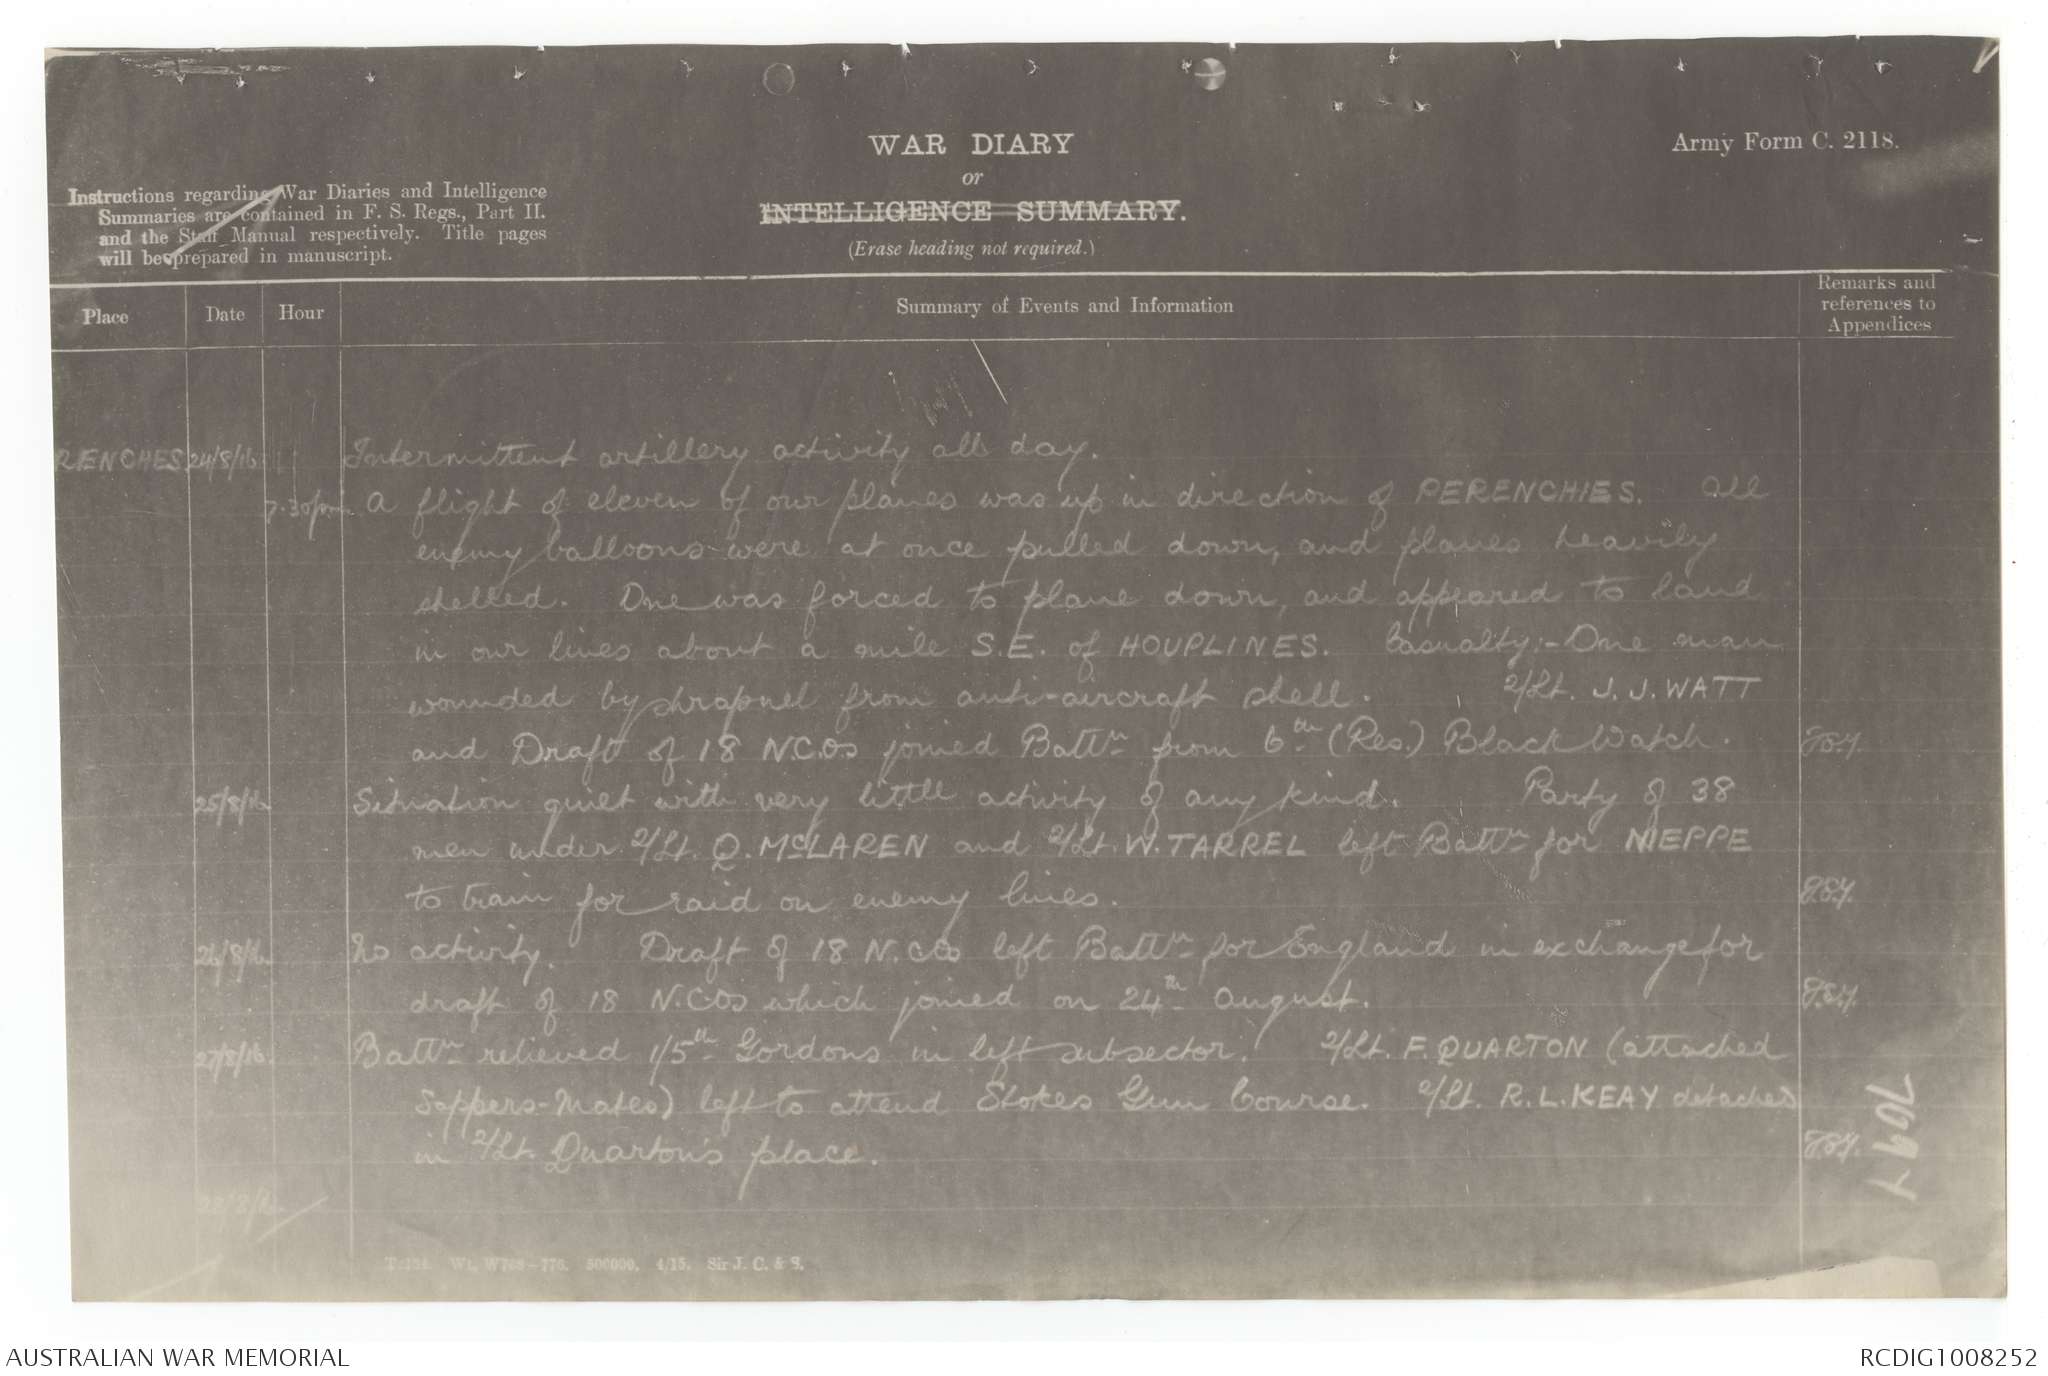 WAR DIARY
or
INTELLIGENCE SUMMARY.
(Erase heading not required.)
Army Form C. 2118.
Instructions regarding War Diaries and Intelligence
Summaries are contained in F. S. Regs., Part II.
and the Staff Manual respectively. Title pages
will be prepared in manuscript.
Place
Date
Hour
Summary of Events and Information
Remarks and
references to
Appendices
RENCHES 24/8/16 Intermittent artillery activity all day.
7.30pm A flight of eleven of our planes was up in direction of PERENCHIES. All
enemy balloons were at once pulled down, and planes heavily
shelled. One was forced to plane down, and appeared to land
in our lines about a mile S.E. of HOUPLINES. Casualty:- One man
wounded by shrapnel from anti-aircraft shell. 2/Lt. J. J. WATT
and Draft of 18 N.C.Os joined Battn from 6th (Res.) Black Watch.
25/8/16 Situation quiet with very little activity of any kind. Party of 38
men under 2/Lt. Q. McLAREN and 2/Lt. W. TARREL left Battn for NIEPPE
to train for raid on enemy lines.
26/8/16 No activity. Draft of 18 N.COs left Battn for England in exchange for
draft of 18 N.C.Os which joined on 24th August.
27/8/16 Battn relieved 1/5th Gordons in left subsector. 2/Lt. F. QUARTON (attached
Sappers-Mates) left to attend Stokes Gun Course. 2/Lt. R. L. KEAY detached
in 2/Lt. Quarton's place.
28/8/16
T2134. Wt. W708-776. 500000. 4/15. Sir J. C. & S.
AUSTRALIAN WAR MEMORIAL
RCDIG1008252